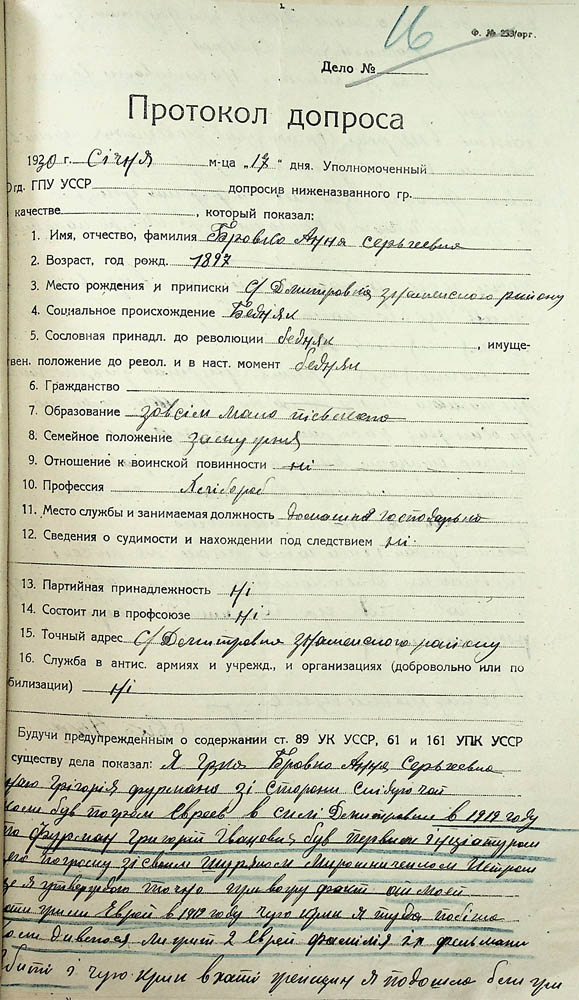 16
Ф. № 253/орг.
Дело №
Протокол допроса
1930 г. Січня м-ца „17“ дня. Уполномоченный
отд. ГПУ УССР допросив ниженазванного гр.
качестве , который показал:
1. Имя, отчество, фамилия Бровко Анна Серьгеевна
2. Возраст, год рожд. 1897
3. Место рождения и приписки С/ Дмитровка знаменского району
4. Социальное происхождение Бедняк
5. Сословная принадл. до революции бедняк , имуще-
вен. положение до револ. и в наст. момент бедняк
6. Гражданство
7. Образование зовсім мало
8. Семейное положение замужня
9. Отношение к воинской повинности ні
10. Профессия Хлібороб
11. Место службы и занимаемая должность домашне господарьво
12. Сведения о судимости и нахождении под следствием ні
13. Партийная принадлежность Ні
14. Состоит ли в профсоюзе Ні
15. Точный адрес С/ Дмитровка знаменского району
16. Служба в антис. армиях и учрежд., и организациях (добровольно или по
билизации) Ні
Будучи предупрежденным о содержании ст. 89 УК УССР, 61 и 161 УПК УССР
существу дела показал: Я Бровко Анна Серьгеевна
Григорія фурмана зі стороны
коли був погром Евреев в силі Дмитровки в 1919 году
Фурман Григорій Іванович був первим
погрому зі своим шуряком Мирошниченком Петром
Я точно привожу факт
Еврей в 1919 году чую крик Я туда побігла
дивлюся лижит 2 Еврея фамілія іх фельмани
і чую крик в хаті Я подошла